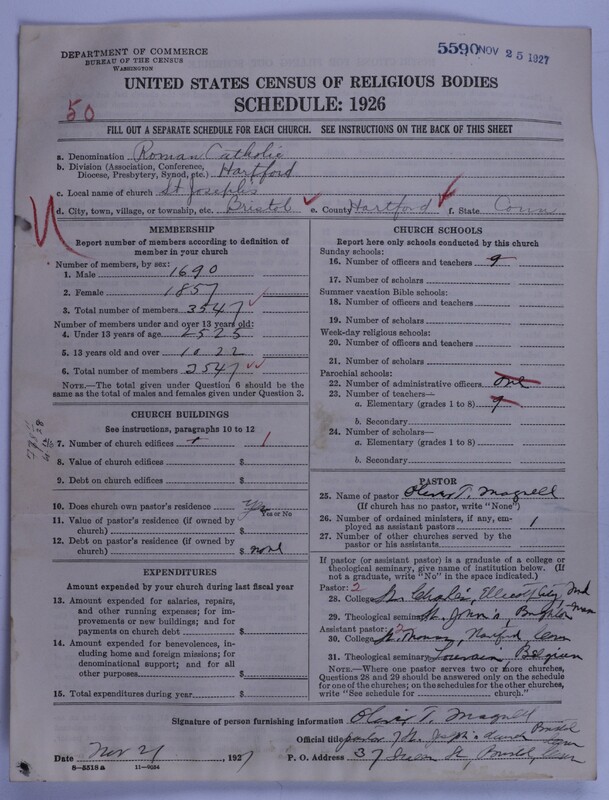 DEPARTMENT OF COMMERCE
BUREAU OF THE CENSUS
WASHINGTON
5590 NOV 25 1927
UNITED STATES CENSUS OF RELIGIOUS BODIES
SCHEDULE: 1926
50
FILL OUT A SEPARATE SCHEDULE FOR EACH CHURCH. SEE INSTRUCTIONS ON THE BACK OF THIS SHEET
a. Denomination Roman Catholic
b. Division (Association, Conference, Diocese, Presbytery, Synod, etc.) Hartford
c. Local name of church St Joseph's
d. City, town, village, or township, etc. Bristol e. County Hartford f. State Conn
MEMBERSHIP
Report number of members according to definition of
member in your church
Number of members, by sex:
1. Male 1690
2. Female 1857
3. Total number of members 3547
Number of members under and over 13 years old:
4. Under 13 years of age 2525
5. 13 years old and over 1022
6. Total number of members 3547
NOTE.—The total given under Question 6 should be
same as the total of males and females given under Question 3.
CHURCH BUILDINGS
See instructions, paragraphs 10 to 12
7. Number of church edifices 1
8. Value of church edifices $
9. Debt on church edifices $
10. Does church own pastor's residence Yes
Yes or No
11. Value of pastor's residence (if owned by
church) $
12. Debt on pastor's residence (if owned by
church) $ none
EXPENDITURES
Amount expended by your church during last fiscal year
13. Amount expended for salaries, repairs,
and other running expenses; for im-
provements or new buildings; and for
payments on church debt $
14. Amount expended for benevolences, in-
cluding home and foreign missions; for
denominational support; and for all
other purposes $
15. Total expenditures during year $
CHURCH SCHOOLS
Report here only schools conducted by this church
Sunday schools:
16. Number of officers and teachers 9
17. Number of scholars
Summer vacation Bible schools:
18. Number of officers and teachers
19. Number of scholars
Week-day religious schools:
20. Number of officers and teachers
21. Number of scholars
Parochial schools:
22. Number of administrative officers one
23. Number of teachers—
a. Elementary (grades 1 to 8) 9
b. Secondary
24. Number of scholars—
a. Elementary (grades 1 to 8)
b. Secondary
PASTOR
25. Name of pastor Oliver T. Magnell
(If church has no pastor, write "None")
26. Number of ordained ministers, if any, em-
ployed as assistant pastors 1
27. Number of other churches served by the
pastor or his assistants
If pastor (or assistant pastor) is a graduate of a college or
theological seminary, give name of institution below. (If
not a graduate, write "No" in the space indicated.)
Pastor: 2
28. College St. Charles, Ellicott City, Md
29. Theological seminary St. John's, Brighton Mass
Assistant pastor: 2
30. College St. Thomas, Hartford Conn
31. Theological seminary Louvain, Belgium
NOTE.—Where one pastor serves two or more churches,
Questions 28 and 29 should be answered only on the schedule
for one of the churches; on the schedules for the other churches,
write "See schedule for church."
Signature of person furnishing information Oliver T. Magnell
Official title pastor of St. Joseph's church Bristol Conn
Date Nov 21, 1927 P. O. Address 37 Queen St, Bristol, Conn
8-5518a 11-9034